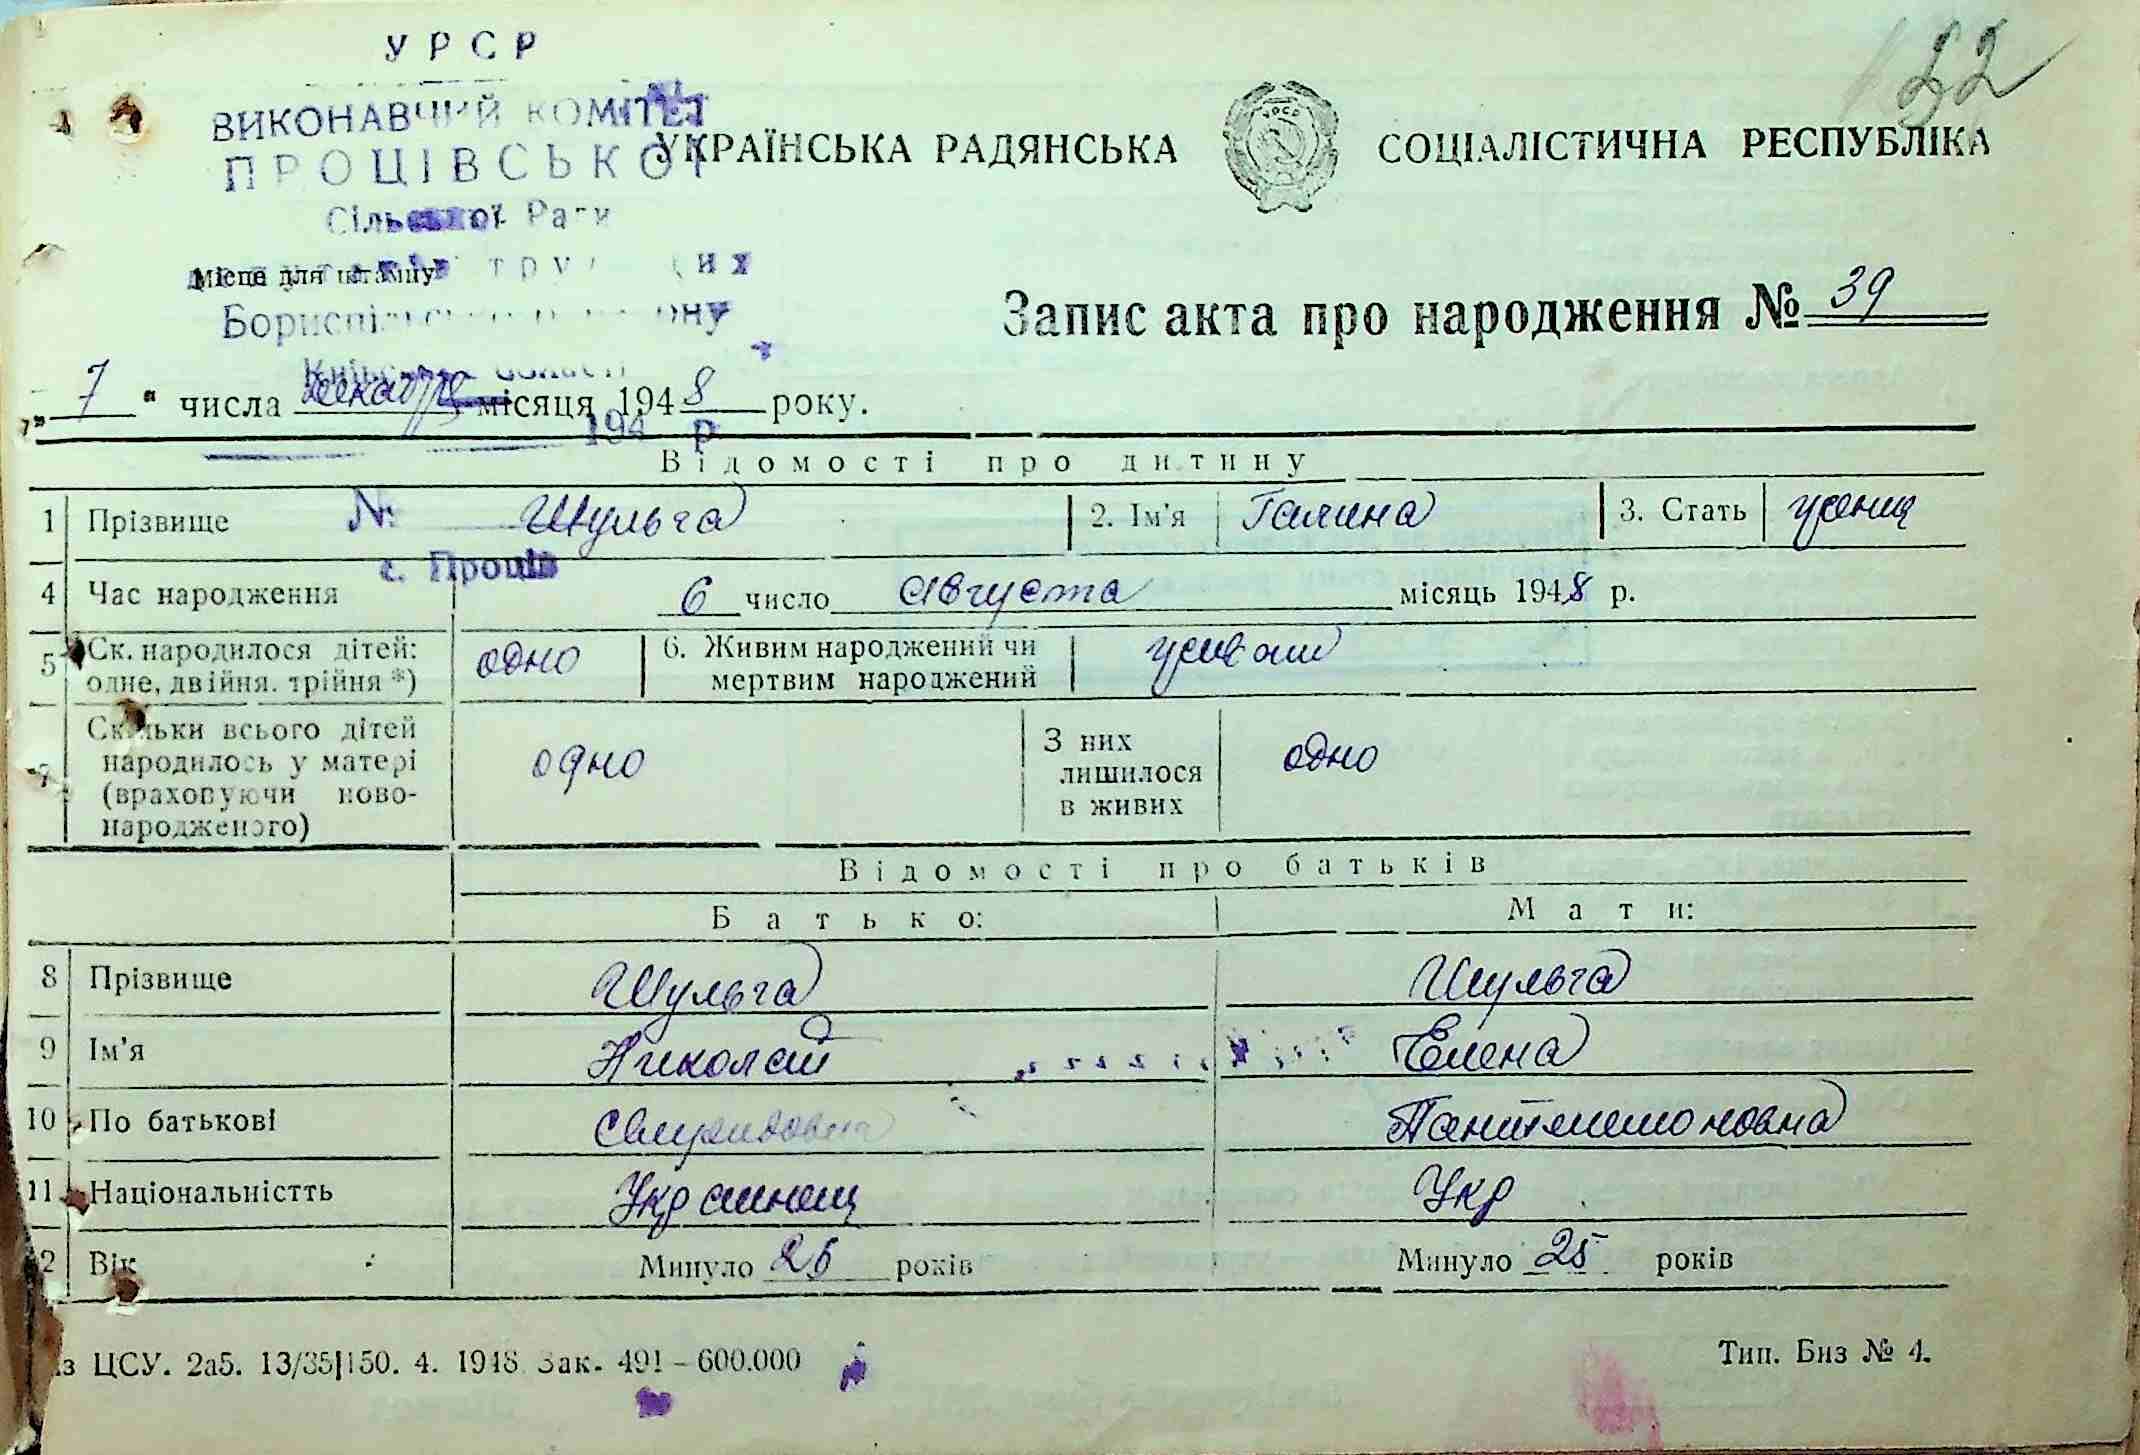 52
УРСР
ВИКОНАВЧИЙ КОМІТЕТ
ПРОЦІВСЬКОЇ
Сільської Ради
УКРАЇНСЬКА РАДЯНСЬКА СОЦІАЛІСТИЧНА РЕСПУБЛІКА
Місце для штампу
Бориспільського району
Київської області
Запис акта про народження № 39
„ 7 “ числа декабря місяця 1948 року.
194 р
Відомості про дитину
№
1 Прізвище Шульга 2. Ім'я Галина 3. Стать женщ
с. Проців
4 Час народження 6 число Августа місяць 1948 р.
5 Ск. народилося дітей: одне, двійня. трійня *) одно 6. Живим народжений чи мертвим народжений живой
7 Скільки всього дітей народилось у матері (враховуючи ново-народженого) одно З них лишилося в живих одно
Відомості про батьків
Батько: Мати:
8 Прізвище Шульга Шульга
9 Ім'я Николай Елена
10 По батькові Пантилимоновна
11 Національністть Украинец Укр
12 Вік Минуло 26 років Минуло 25 років
ЦСУ. 2а5. 13/35|150. 4. 1948 Зак. 491 – 600.000
Тип. Биз № 4.